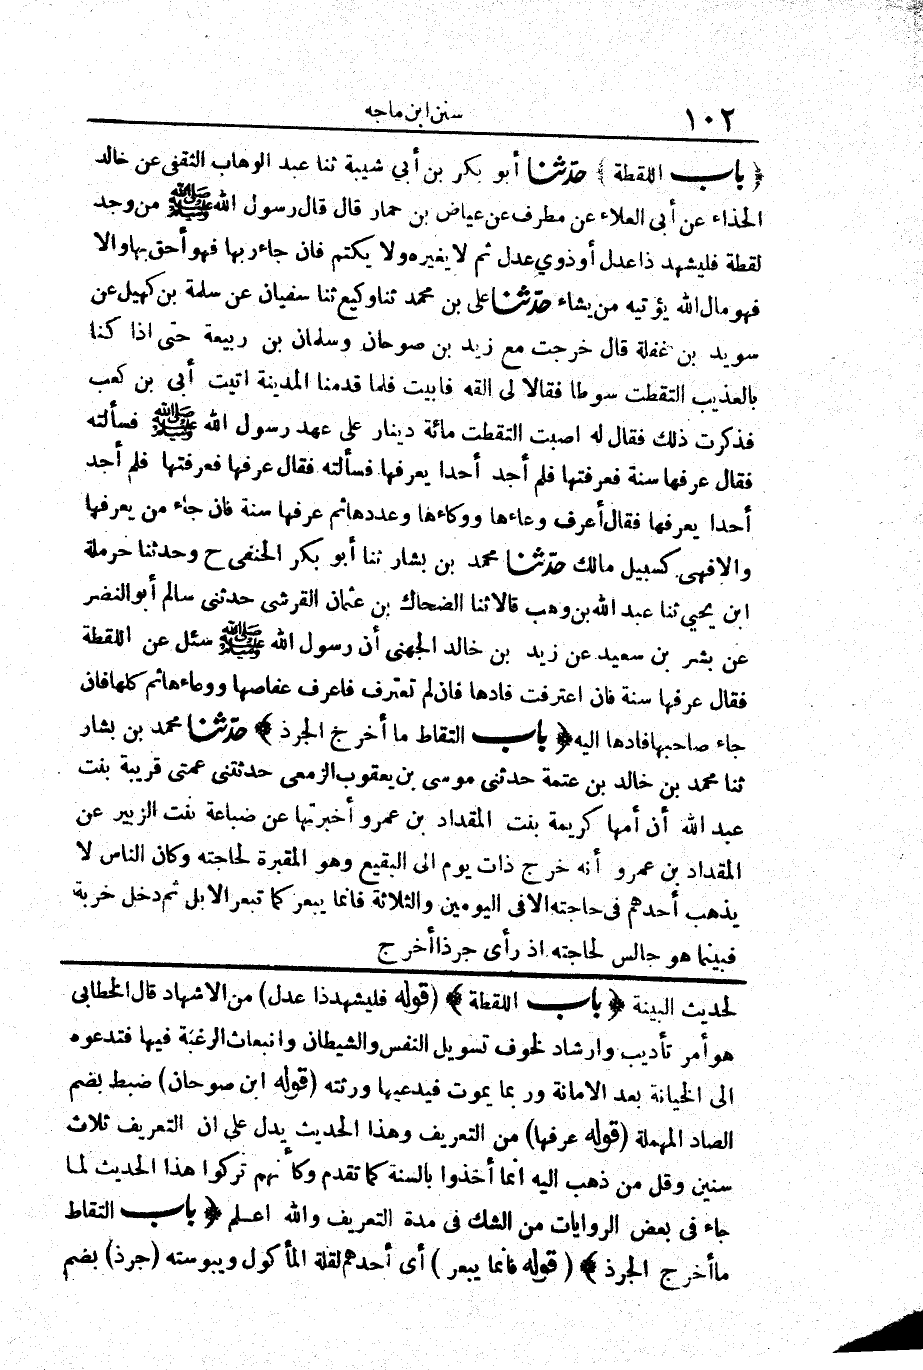 ١٠٢ سنن ابن ماجه
﴿ باب اللقطة ﴾ حدّثنا أبو بكر بن أبي شيبة ثنا عبد الوهاب الثقفى عن خالد
الحذاء عن أبى العلاء عن مطرف عن عياض بن حمار قال قال رسول الله ﷺ من وجد
لقطة فليشهد ذا عدل أو ذوي عدل ثم لا يغيره ولا يكتم فان جاء ربها فهو أحق بها والا
فهو مال الله يؤتيه من يشاء حدّثنا على بن محمد ثنا وكيع ثنا سفيان عن سلمة بن كهيل عن
سويد بن غفلة قال خرجت مع زيد بن صوحان وسلمان بن ربيعة حتى اذا كنا
بالعذيب التقطت سوطا فقالا لى القه فابيت فلما قدمنا المدينة اتيت أبى بن كعب
فذكرت ذلك فقال له اصبت التقطت مائة دينار على عهد رسول الله ﷺ فسألته
فقال عرفها سنة فعرفتها فلم أجد أحدا يعرفها فسألته فقال عرفها فعرفتها فلم أجد
أحدا يعرفها فقال أعرف وعاءها ووكاءها وعددها ثم عرفها سنة فان جاء من يعرفها
والا فهى كسبيل مالك حدّثنا محمد بن بشار ثنا أبو بكر الحنفى ح وحدثنا حرملة
ابن يحيي ثنا عبد الله بن وهب قالا ثنا الضحاك بن عثمان القرشى حدثنى سالم أبو النضر
عن بشر بن سعيد عن زيد بن خالد الجهنى أن رسول الله ﷺ سئل عن اللقطة
فقال عرفها سنة فان اعترفت فادها فان لم تعترف فاعرف عفاصها ووعاءها ثم كلها فان
جاء صاحبها فادها اليه ﴿ باب التقاط ما أخرج الجرذ ﴾ حدّثنا محمد بن بشار
ثنا محمد بن خالد بن عتمة حدثنى موسى بن يعقوب الزمعى حدثتنى عمتى قريبة بنت
عبد الله أن أمها كريمة بنت المقداد بن عمرو أخبرتها عن ضباعة بنت الزبير عن
المقداد بن عمرو أنه خرج ذات يوم الى البقيع وهو المقبرة لحاجته وكان الناس لا
يذهب أحدهم فى حاجته الا فى اليومين والثلاثة فانما يبعر كما تبعر الابل ثم دخل خربة
فبينما هو جالس لحاجته اذ رأى جرذا أخرج
لحديث البينة ﴿ باب اللقطة ﴾ (قوله فليشهد ذا عدل) من الاشهاد قال الخطابى
هو أمر تأديب وارشاد لخوف تسويل النفس والشيطان وانبعاث الرغبة فيها فتدعوه
الى الخيانة بعد الامانة وربما يموت فيدعيها ورثته (قوله ابن صوحان) ضبط بضم
الصاد المهملة (قوله عرفها) من التعريف وهذا الحديث يدل على ان التعريف ثلاث
سنين وقل من ذهب اليه انما أخذوا بالسنة كما تقدم وكأنهم تركوا هذا الحديث لما
جاء فى بعض الروايات من الشك فى مدة التعريف والله اعلم ﴿ باب التقاط
ما أخرج الجرذ ﴾ (قوله فانما يبعر) أى أحدهم لقلة المأكول ويبوسته (جرذ) بضم